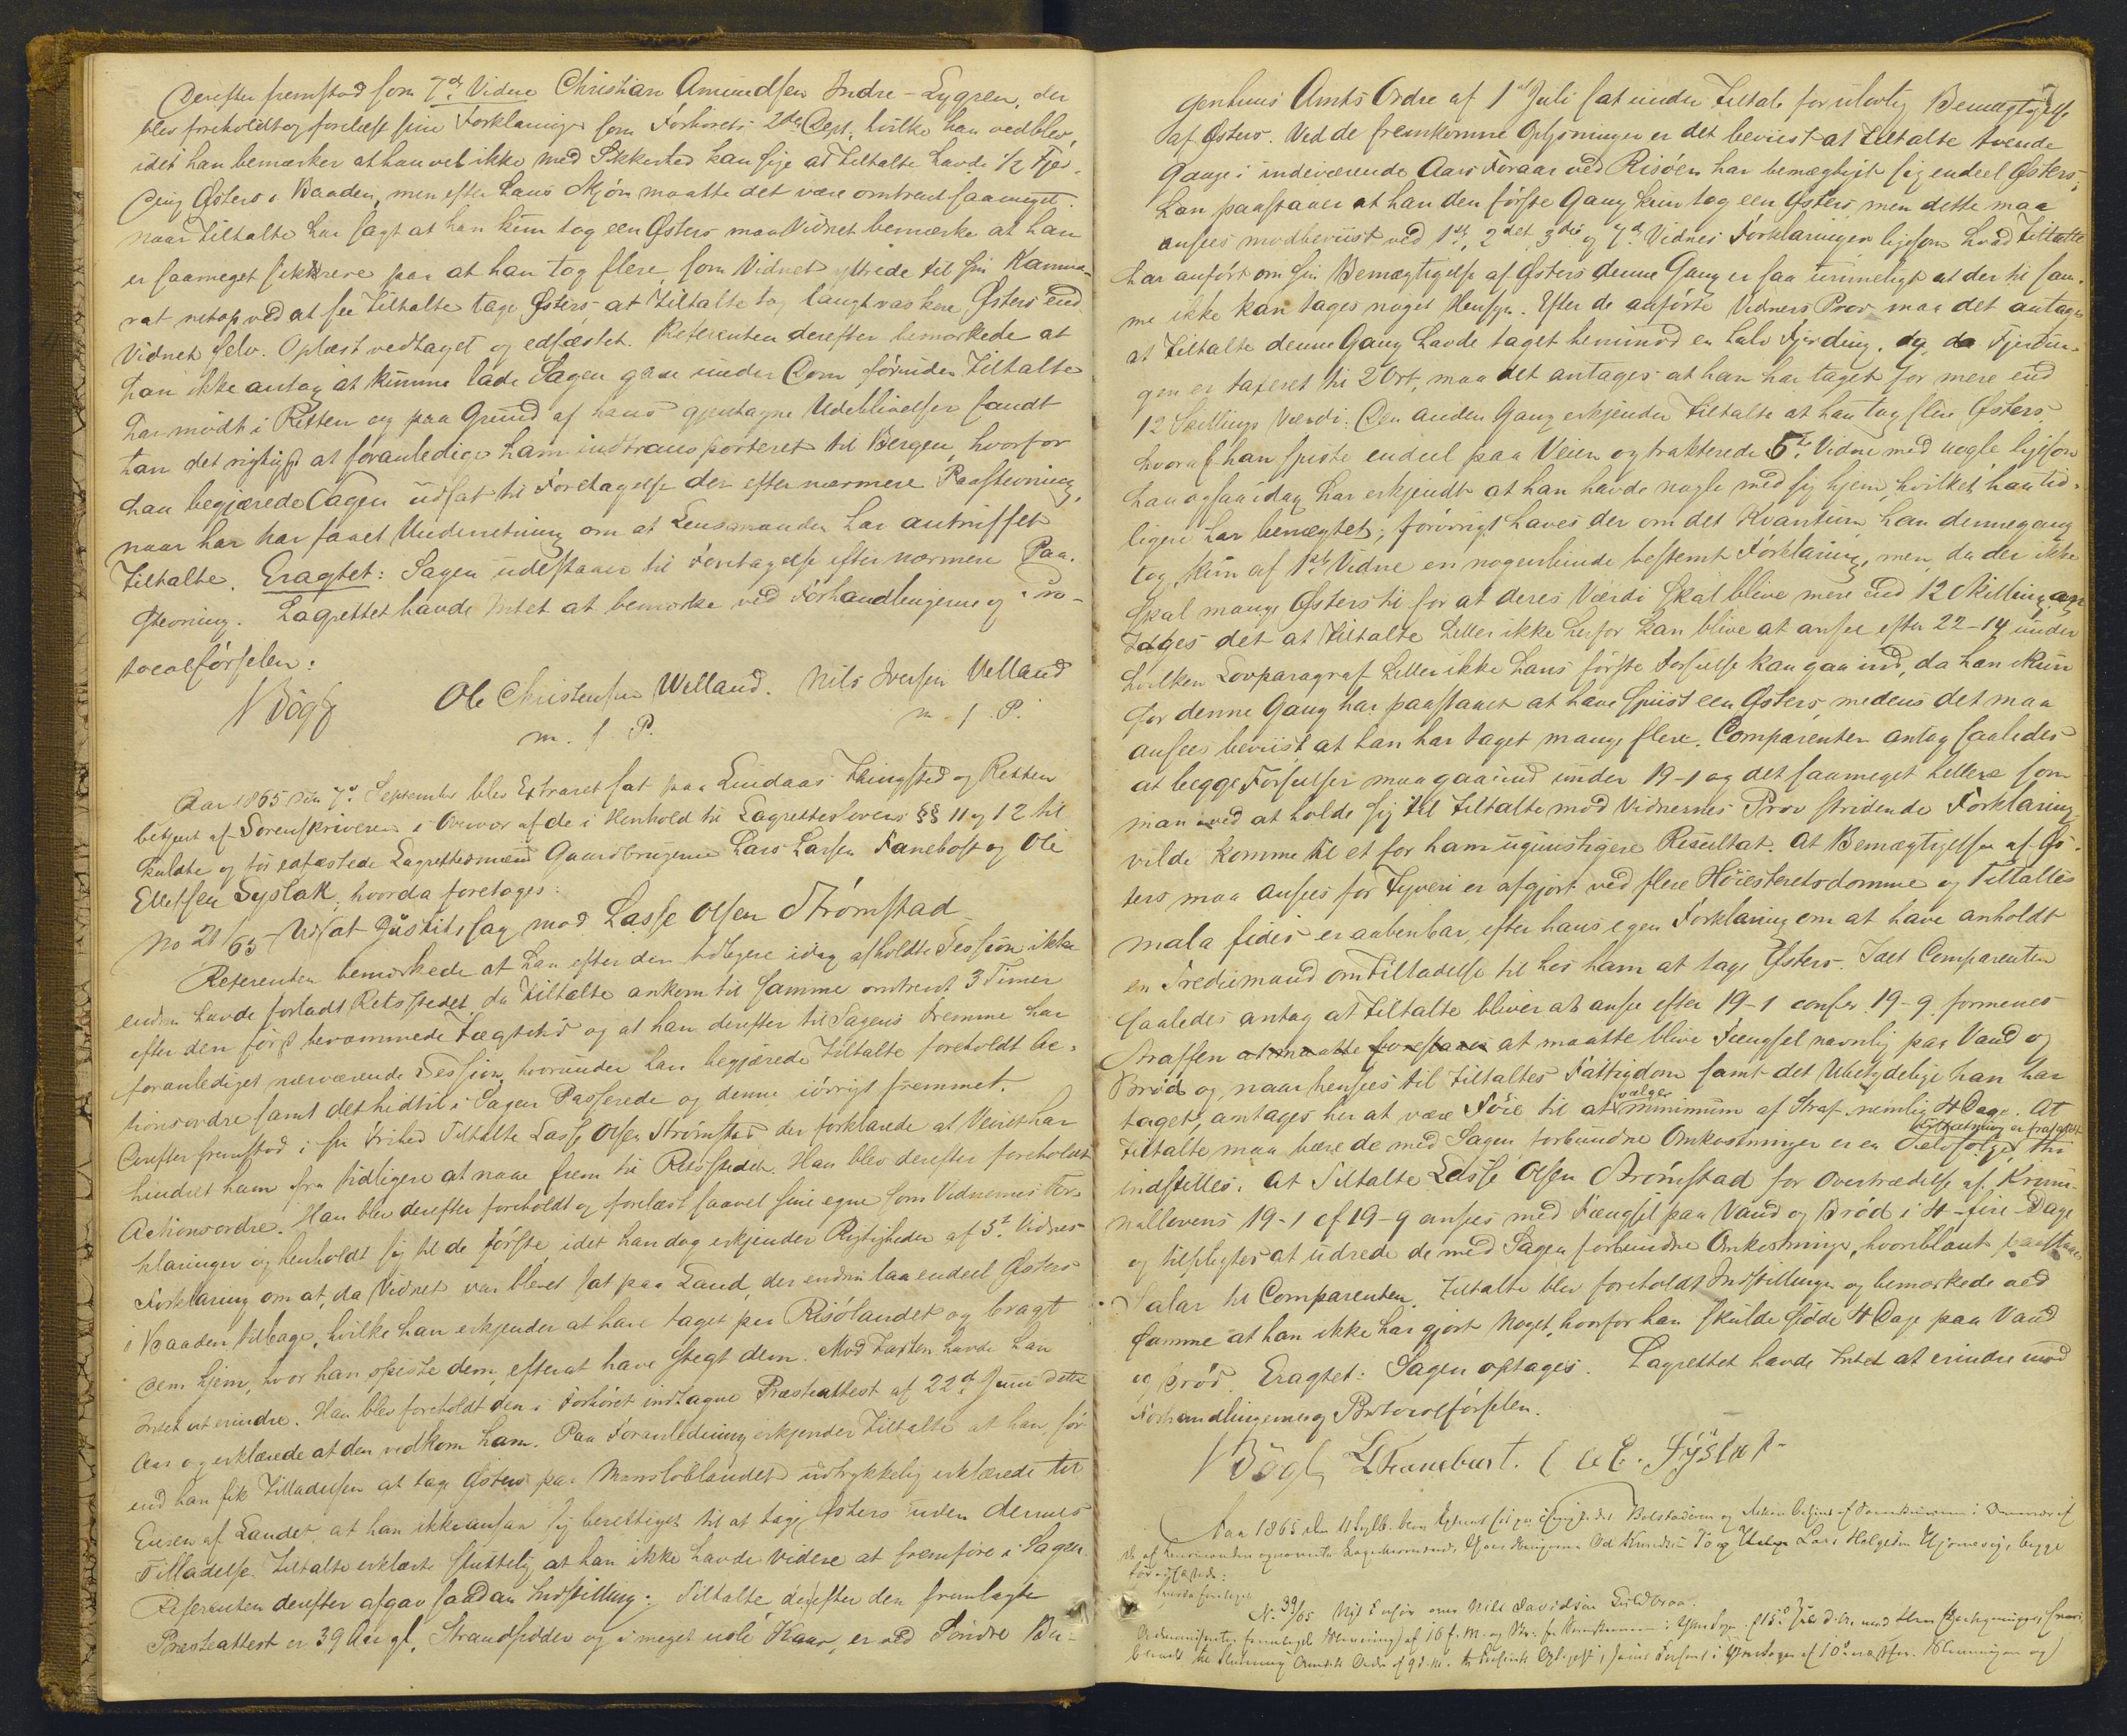 Derefter fremstod som 7de Vidne Christian Amundsen Indre-Lygren, der
blev foreholdt og forelæst sin Forklaring som Forhørets 2det Dept., hvilke han vedblev,
idet han bemærker at han vel ikke med Sikkerhed kan sige at Tiltalte havde 1/2 Fjer-
ding Østers i Baaden, men efter hans Skjøn maatte det være omtrent saameget.
Naar Tiltalte har sagt at han kun tog een Østers maa Vidnet bemærke at han
er saameget sikkrere paa at han tog flere, som Vidnet yttrede til sin Kamme-
rat netop ved at see Tiltalte tage Østers at Tiltalte tog langt vakkere Østers end
Vidnet selv. Oplæst vedtaget og edfæstet. Referenten derefter bemærkede at
han ikke antog at kunne lade Sagen gaae under Dom førinden Tiltalte
har mødt i Retten og paa Grund af hans gjentagne Udeblivelser fandt
han det rigtigst at foranledige ham indtransporteret til Bergen, hvorfor
han begjærede Sagen udsat til Foretagelse der efter nærmere Paastevning,
naar han har faaet Underretning om at Lensmanden har antruffet
Tiltalte. Eragtet: Sagen udestaaer til Foretagelse efter nærmere Paa-
stevning. Lagrettet havde Intet at bemærke ved Forhandlingerne og Pro-
tocolførselen.
NBøgh Ole Christensen Welland. Nils Iversen Velland
m. f. P. m. f. P.
Aar 1865 den 7de September blev Extraret sat paa Lindaas Thingsted og Retten
betjent af Sorenskriveren i Overvær af de i Henhold til Lagretteslovens §§ 11 og 12 til
kaldte og før edfæstede Lagrettesmænd Gaardbrugerne Lars Larsen Fanebost og Ole
Ellefsen Syslak, hvorda foretoges:
No 21/65 Udsat Justitssag mod Lasse Olsen Strømstad
Referenten bemærkede at han efter den tidligere idag afholdte Session ikke
endnu havde forladt Retsstedet, da Tiltalte ankom til samme omtrent 3 Timer
efter den først berammede Tægtetid og at han derefter til Sagens Fremme har
foranlediget nærværende Session, hvorunder han begjærede Tiltalte foreholdt Ac-
tionsordre samt det hidtil i Sagen Passerede og denne iøvrigt fremmet.
Derefter fremstod i fri Frihed Tiltalte Lasse Olsen Strømstad der forklarede at Veiret har
hindret ham fra tidligere at naae frem til Retsstedet. Han blev derefter foreholdt
Actionsordre. Han blev derefter foreholdt og forelæst saavel sine egne som Vidnernes For-
klaringer og henholdt sig til de første, idet han dog erkjender Rigtigheden af 5te Vidnes
Forklaring om at, da Vidnet var blevet sat paa Land, der endnu laa endeel Østers
i Baaden tilbage, hvilke han erkjender at have taget paa Risølandet og bragt
dem hjem, hvor han spiste dem efterat have stegt dem. Mod Taxten havde han
Intet at erindre. Han blev foreholdt den i Forhøret indtagne Præsteattest af 22de Juni dette
Aar og erklærede at den vedkom ham. Paa Foranledning erkjender Tiltalte at han, før
end han fik Tilladelsen at tage Østers paa Mansløblandet udtrykkelig erklærede til
Eieren af Landet at han ikke ansaa sig berettiget til at tage Østers uden dennes
Tilladelse. Tiltalte erklærte sluttelig at han ikke havde videre at fremføre i Sagen.
Referenten derefter afgav saadan Indstilling: Tiltalte der efter den fremlagte
Præsteattest er 39 Aar gl., Strandsidder og i meget usle Kaar, er ved Søndre Ber-
genhuus Amts Ordre af 1ste Juli sat under Tiltale for ulovlig Bemægtigelse
af Østers. Ved de fremkomne Oplysninger er det beviist at Tiltalte tvende
Gange i indeværende Aars Foraar ved Risøen har bemægtiget sig endeel Østers;
han paastaaer at han den første Gang kun tog een Østers, men dette maa
ansees modbeviist ved 1ste, 2det, 3die og 7de Vidnes Forklaringer ligesom hvad Tiltalte
har anført om sin Bemægtigelse af Østers denne Gang er saa urimeligt at der til sam-
me ikke kan tages noget Hensyn. Efter de anførte Vidners Prov maa det antages
at Tiltalte denne Gang havde taget henimod en halv Fjerding, og da Fjerdin-
gen er taxeret til 2 Ort, maa det antages at han har taget for mere end
12 Skillings Værdi. Den anden Gang erkjender Tiltalte at han tog flere Østers
hvoraf han spiste endeel paa Veien og trakterede 5te Vidne med nogle ligesom
han ogsaa idag har erkjendt at han havde nogle med sig hjem, hvilket han tid-
ligere har benægtet; forøvrigt haves der om det Kvantum han dennegang
tog, kun af 1ste Vidne en nogenlunde bestemt Forklaring, men da der ikke
skal mange Østers til for at deres Værdi skal blive mere end 12 Skilling an
tages det at Tiltalte heller ikke herfor kan blive at ansee efter 22-14 under
hvilken Lovparagraf heller ikke hans første Forseelse kan gaa ind, da han kun
for denne Gang har paastaaet at have spiist een Østers, medens det maa
ansees beviist at han har taget mange flere. Comparenten antog saaledes
at begge Forseelser maa gaa ind under 19-1 og det saameget hellere som
man ved at holde sig til Tiltaltes mod Vidnernes Prov stridende Forklaring
vilde komme til et for ham ugunstigere Resultat. At Bemægtigelsen af Øs-
ters maa ansees for Tyveri er afgjort ved flere Høiesteretsdomme og Tiltaltes
mala fides er aabenbar, efter hans egen Forklaring om at have anholdt
en Trediemand om Tilladelse til hos ham at tage Østers. Idet Comparenten
saaledes antog at Tiltalte bliver at ansee efter 19-1 confer 19-9 formenes
Straffen at maatte blive Fængsel navnlig paa Vand og
Brød og naar hensees til Tiltaltes Fattigdom samt det Ubetydelige han har
taget, antages her at være Føie til at vælge minimum af Straf nemlig 4 Dage. At
Tiltalte maa bære de med Sagen forbundne Omkostninger er en Selvfølge, thi
indstilles: At Tiltalte Lasse Olsen Strømstad for Overtrædelse af Krimi-
nallovens 19-1 cf 19-9 ansees med Fængsel paa Vand og Brød i 4-fire-Dage
og tilpligtes at udrede de med Sagen forbundne Omkostninger, hvoriblant paastaaes
Salar til Comparenten. Tiltalte blev foreholdt Indstillingen og bemærkede ved
samme at han ikke har gjort Noget, hvorfor han skulde sidde 4 Dage paa Vand
og Brød. Eragtet: Sagen optages. Lagrettet havde Intet at erindre mod
Forhandlingerne og Protocolførselen.
NBøgh LLFanebust. O. E. Syslak
Aar 1865 den
før edfæstede:
hvorda foretoges
No 39/65 Nils Davidsen